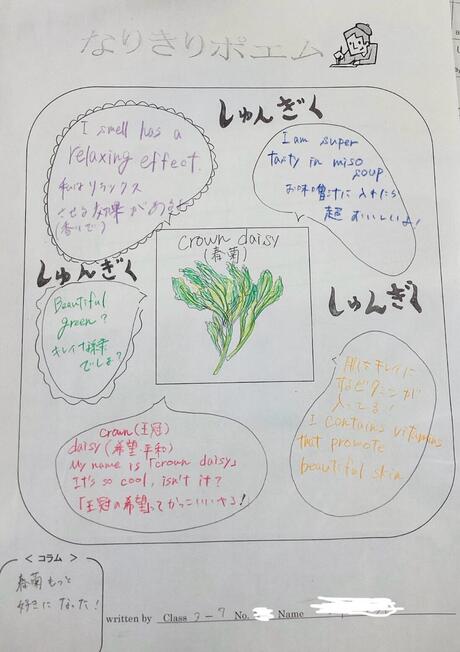 なりきりポエム
しゅんぎく
I smell has a
relaxing effect.
私はリラックス
させる効果があるよ
(香りで)
I am super
tasty in miso
soup
お味噌汁に入れたら
超おいしいよ!
crown daisy
(春菊)
しゅんぎく
Beautiful
green?
キレイな緑
でしょ?
しゅんぎく
肌をキレイに
するビタミンが
入ってる!
I contains vitamins
that promote
beautiful skin
crown(王冠)
daisy(希望・平和)
My name is「crown daisy」
It's so cool, isn't it?
「王冠の希望」ってかっこいいよね!
< コラム >
春菊もっと
好きになった!
written by Class 3-7 No. Name